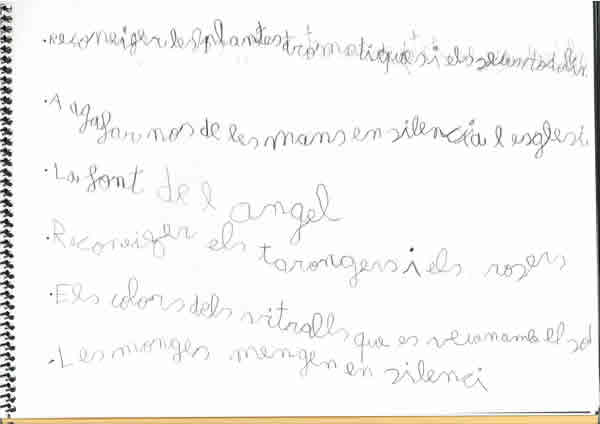 · reconeiger les plantes tromatiques i els
· A agafarnos de les mans en silencia l esglesi
· La font de l angel
· Reconeiger els tarongers i els rosers
· Els colors dels vitralls que es veuanamb el sol
· Les monges mengen en silenci